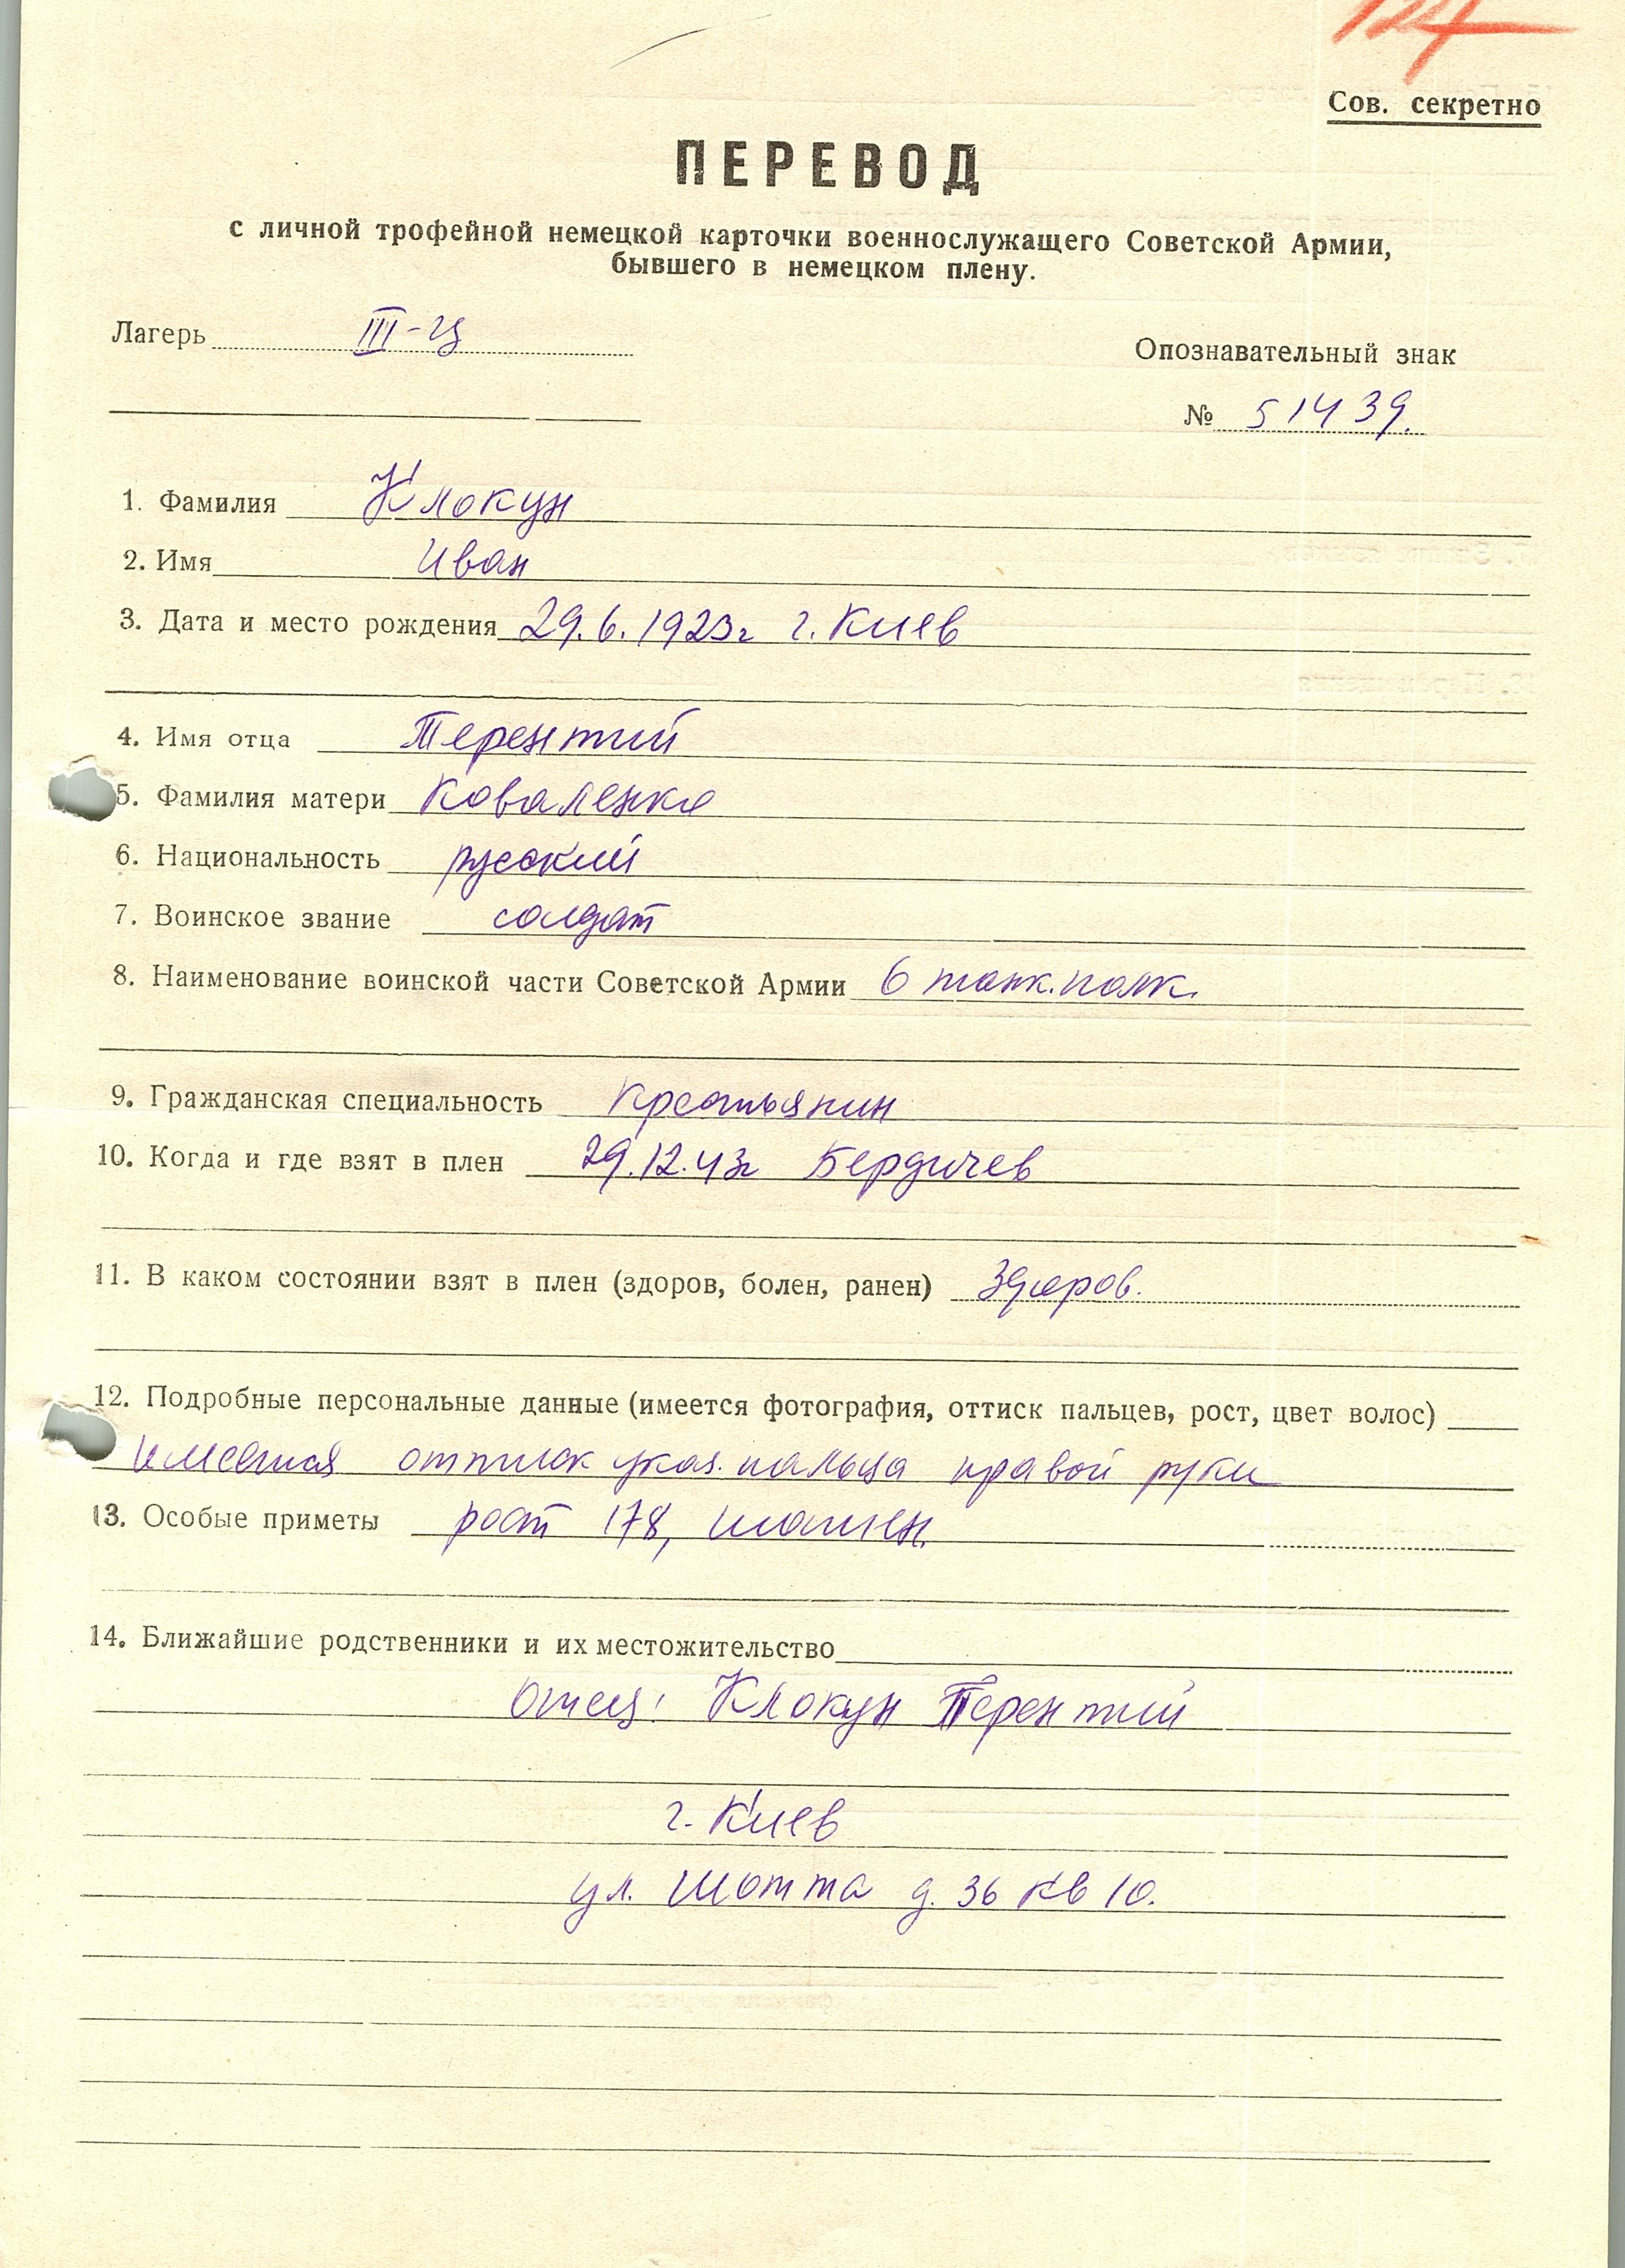 Сов. секретно
ПЕРЕВОД
с личной трофейной немецкой карточки военнослужащего Советской Армии,
бывшего в немецком плену.
Лагерь III-Ц
Опознавательный знак
№ 51439.
1. Фамилия Клокун
2. Имя Иван
3. Дата и место рождения 29.6.1923г г. Киев
4. Имя отца Терентий
5. Фамилия матери Коваленко
6. Национальность русский
7. Воинское звание солдат
8. Наименование воинской части Советской Армии 6 танк. полк.
9. Гражданская специальность Крестьянин
10. Когда и где взят в плен 29.12.43г Бердичев
11. В каком состоянии взят в плен (здоров, болен, ранен) Здоров.
12. Подробные персональные данные (имеется фотография, оттиск пальцев, рост, цвет волос)
имеется оттиск указ. пальца правой руки
13. Особые приметы рост 178, шатен.
14. Ближайшие родственники и их местожительство
Отец: Клокун Терентий
г. Киев
ул. Шотта д. 36 кв 10.